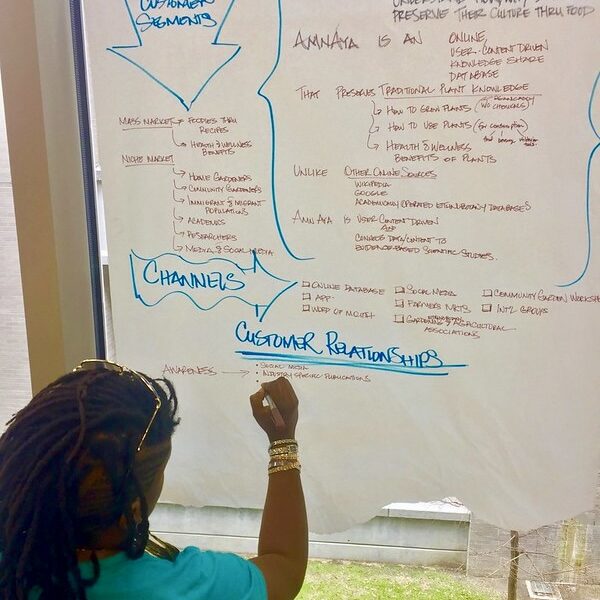 CUSTOMER
SEGMENTS
PRESERVE THEIR CULTURE THRU FOOD
AMNAYA IS AN ONLINE,
USER-CONTENT DRIVEN
KNOWLEDGE SHARE
DATABASE
THAT PRESERVES TRADITIONAL PLANT KNOWLEDGE
HOW TO GROW PLANTS (W/O CHEMICALS)
HOW TO USE PLANTS (for consumption)
HEALTH & WELLNESS
BENEFITS OF PLANTS
UNLIKE OTHER ONLINE SOURCES
WIKIPEDIA
GOOGLE
ACADEMICALLY OPERATED ETHNOBOTANY DATABASES
AMNAYA IS USER CONTENT DRIVEN
AND
CONNECTS DATA/CONTENT TO
EVIDENCE-BASED SCIENTIFIC STUDIES.
MASS MARKET
FOODIES THRU
RECIPES
HEALTH & WELLNESS
BENEFITS
NICHE MARKET
HOME GARDENERS
COMMUNITY GARDENERS
IMMIGRANT & MIGRANT
POPULATIONS
ACADEMICS
RESEARCHERS
MEDIA & SOCIAL MEDIA
CHANNELS
ONLINE DATABASE
APP
WORD OF MOUTH
SOCIAL MEDIA
FARMERS MKTS
GARDENING & AGRICULTURAL
ASSOCIATIONS
COMMUNITY GARDEN WORKSH
INT'L GROUPS
CUSTOMER RELATIONSHIPS
AWARENESS
• SOCIAL MEDIA
• INDUSTRY SPECIFIC PUBLICATIONS